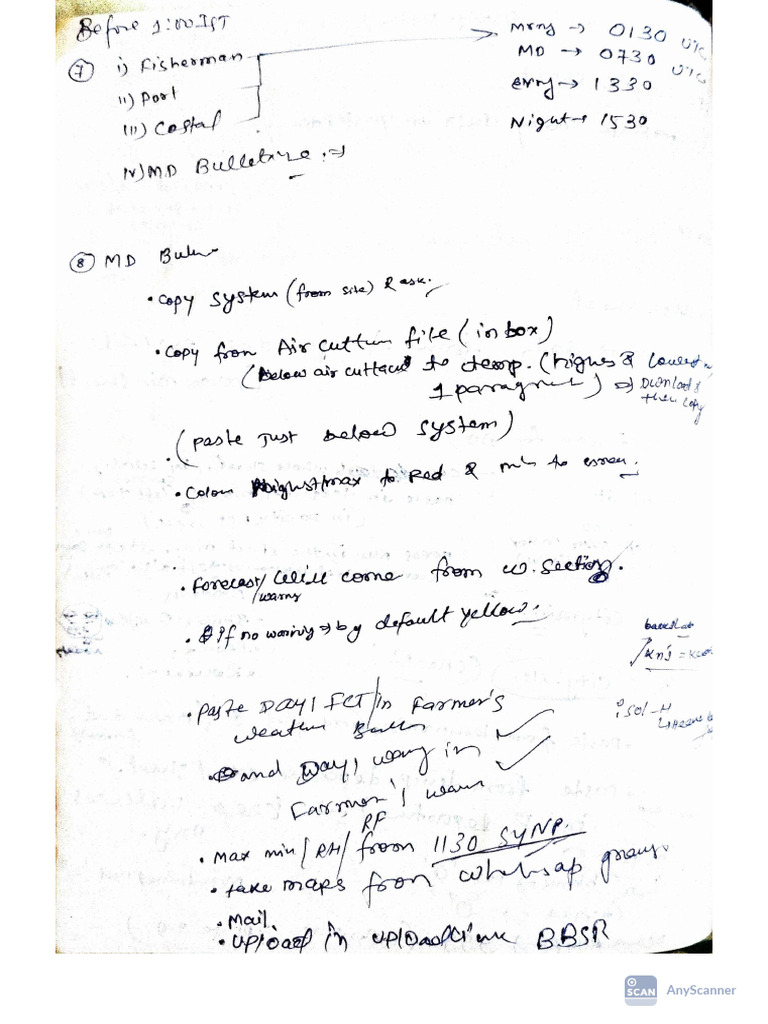 Before 1:00 IST
⑦ i) Fisherman
ii) Port
iii) Costal
iv) MD Bulletine :⇒
Mrng → 0130 UTC
MD → 0730 UTC
evng → 1330
Night → 1530
⑧ MD
• copy system (from site) & ask.
• copy from Air cuttum file (inbox)
(below air to temp. (highes & lowest
1 paragraph) ⇒ Download &
then copy
• (paste Just below system)
• Colour highest/max to Red & min to
• Forecast/ will come from w. section.
warng
• If no warning → by default yellow.
backslat
/kn's =
isol-H
• Paste DAY1 FCT/in Farmer's
weather
• and Day1 warng in
Farmer's warn
RF
• Max min/ RH/ from 1130 SYNP.
• take maps from whatsap group.
• Mail
• upload in uploadlink BBSR
SCAN AnyScanner